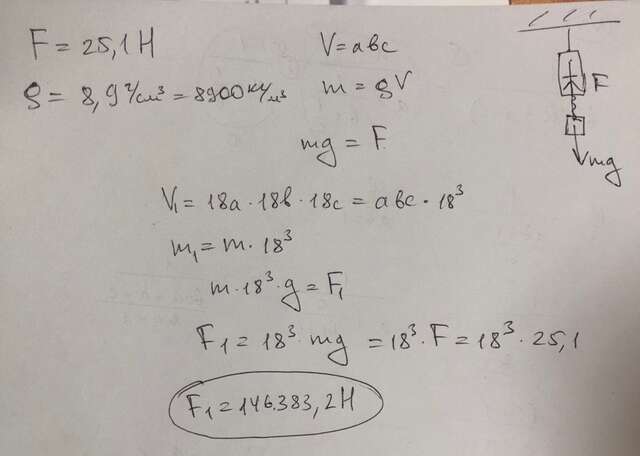 F = 25,1 Н
V = abc
ρ = 8,9 г/см³ = 8900 кг/м³
m = ρV
mg = F
F
mg
V₁ = 18a · 18b · 18c = abc · 18³
m₁ = m · 18³
m · 18³ · g = F₁
F₁ = 18³ · mg = 18³ · F = 18³ · 25,1
F₁ = 146.383,2 Н